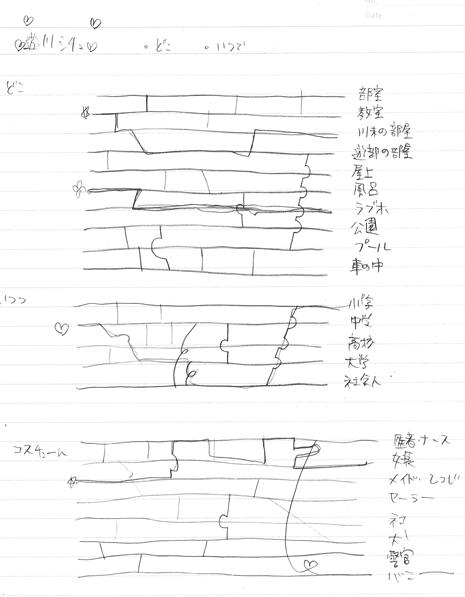 川シチュ ・どこ ・いつで
Date
どこ
部室
教室
川木の部屋
部の部屋
屋上
風呂
ラブホ
公園
プール
車の中
いつ
小学
中学
高校
大学
社会人
コスチューム
医者・ナース
メイド・しつじ
セーラー
ネコ
犬
警官
バニー